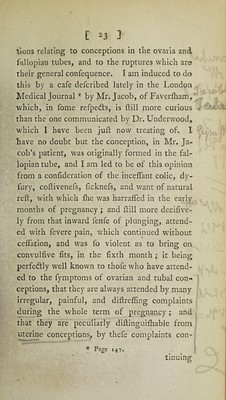 [ 23 ]
tions relating to conceptions in the ovaria and
fallopian tubes, and to the ruptures which are
their general consequence. I am induced to do
this by a case described lately in the London
Medical Journal * by Mr. Jacob, of Faversham,
which, in some respects, is still more curious
than the one communicated by Dr. Underwood,
which I have been just now treating of. I
have no doubt but the conception, in Mr. Ja-
cob's patient, was originally formed in the fal-
lopian tube, and I am led to be of this opinion
from a consideration of the incessant colic, dy-
sury, costiveness, sickness, and want of natural
rest, with which she was harrassed in the early
months of pregnancy; and still more decisive-
ly from that inward sense of plunging, attend-
ed with severe pain, which continued without
cessation, and was so violent as to bring on
convulsive fits, in the sixth month; it being
perfectly well known to those who have attend-
ed to the symptoms of ovarian and tubal con-
ceptions, that they are always attended by many
irregular, painful, and distressing complaints
during the whole term of pregnancy; and
that they are peculiarly distinguishable from
uterine conceptions, by these complaints con-
* Page 147.
tinuing